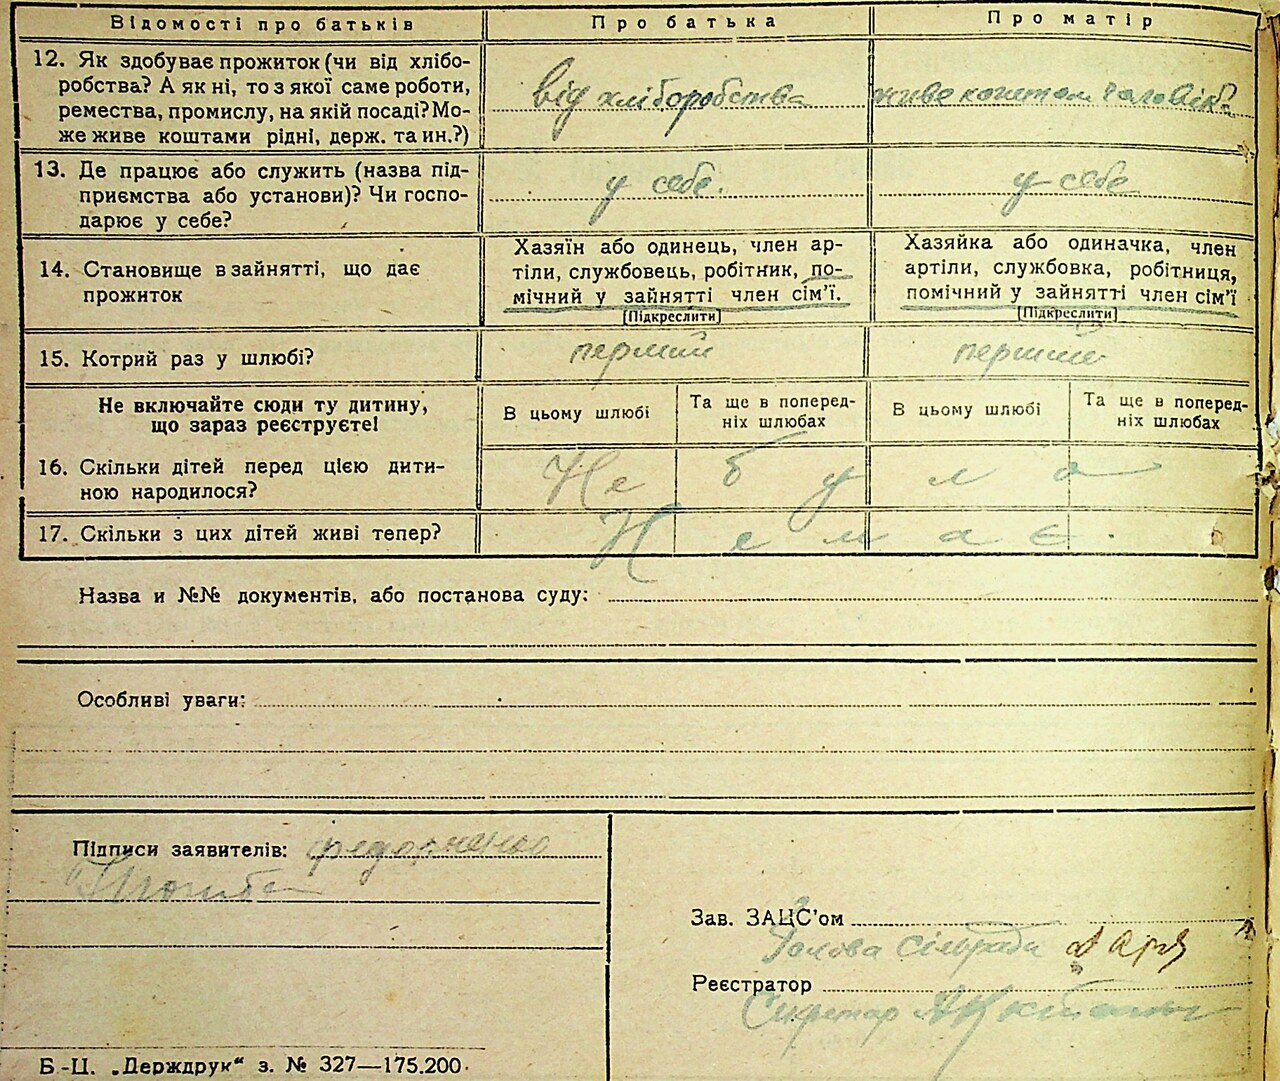 Відомості про батьків
Про батька
Про матір
12. Як здобуває прожиток (чи від хлібо-
робства? А як ні, то з якої саме роботи,
ремества, промислу, на якій посаді? Мо-
же живе коштами рідні, держ. та ин.?)
від хліборобства
живе коштом чоловіка
13. Де працює або служить (назва під-
приємства або установи)? Чи госпо-
дарює у себе?
у себе.
у себе
14. Становище в зайнятті, що дає
прожиток
Хазяїн або одинець, член ар-
тіли, службовець, робітник, по-
мічний у зайнятті член сім'ї.
[Підкреслити]
Хазяйка або одиначка, член
артіли, службовка, робітниця,
помічний у зайнятті член сім'ї
[Підкреслити]
15. Котрий раз у шлюбі?
перший
перший
Не включайте сюди ту дитину,
що зараз реєструєте!
В цьому шлюбі
Та ще в поперед-
ніх шлюбах
В цьому шлюбі
Та ще в поперед-
ніх шлюбах
16. Скільки дітей перед цією дити-
ною народилося?
Не було
17. Скільки з цих дітей живі тепер?
Немає.
Назва и №№ документів, або постанова суду:
Особливі уваги:
Підписи заявителів: Федорченко
Зав. ЗАЦС'ом
Голова сільради
Реєстратор
Секретар
Б.-Ц. „Держдрук“ з. № 327—175.200.